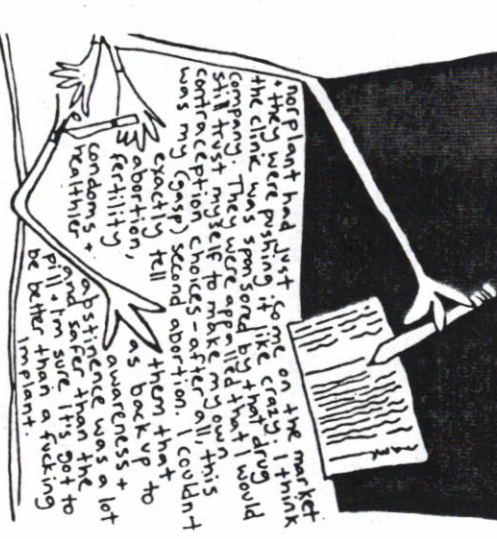 norplant had just come on the market
+ they were pushing it like crazy. I think
the clinic was sponsored by that drug
company. They were appalled that I would
still trust myself to make my own
contraception choices - after all, this
was my (gasp) second abortion. I couldn't
exactly tell them that
abortion, as back up to
fertility awareness +
condoms + abstinence was a lot
healthier and safer than the
pill + I'm sure it's got to
be better than a fucking
implant.